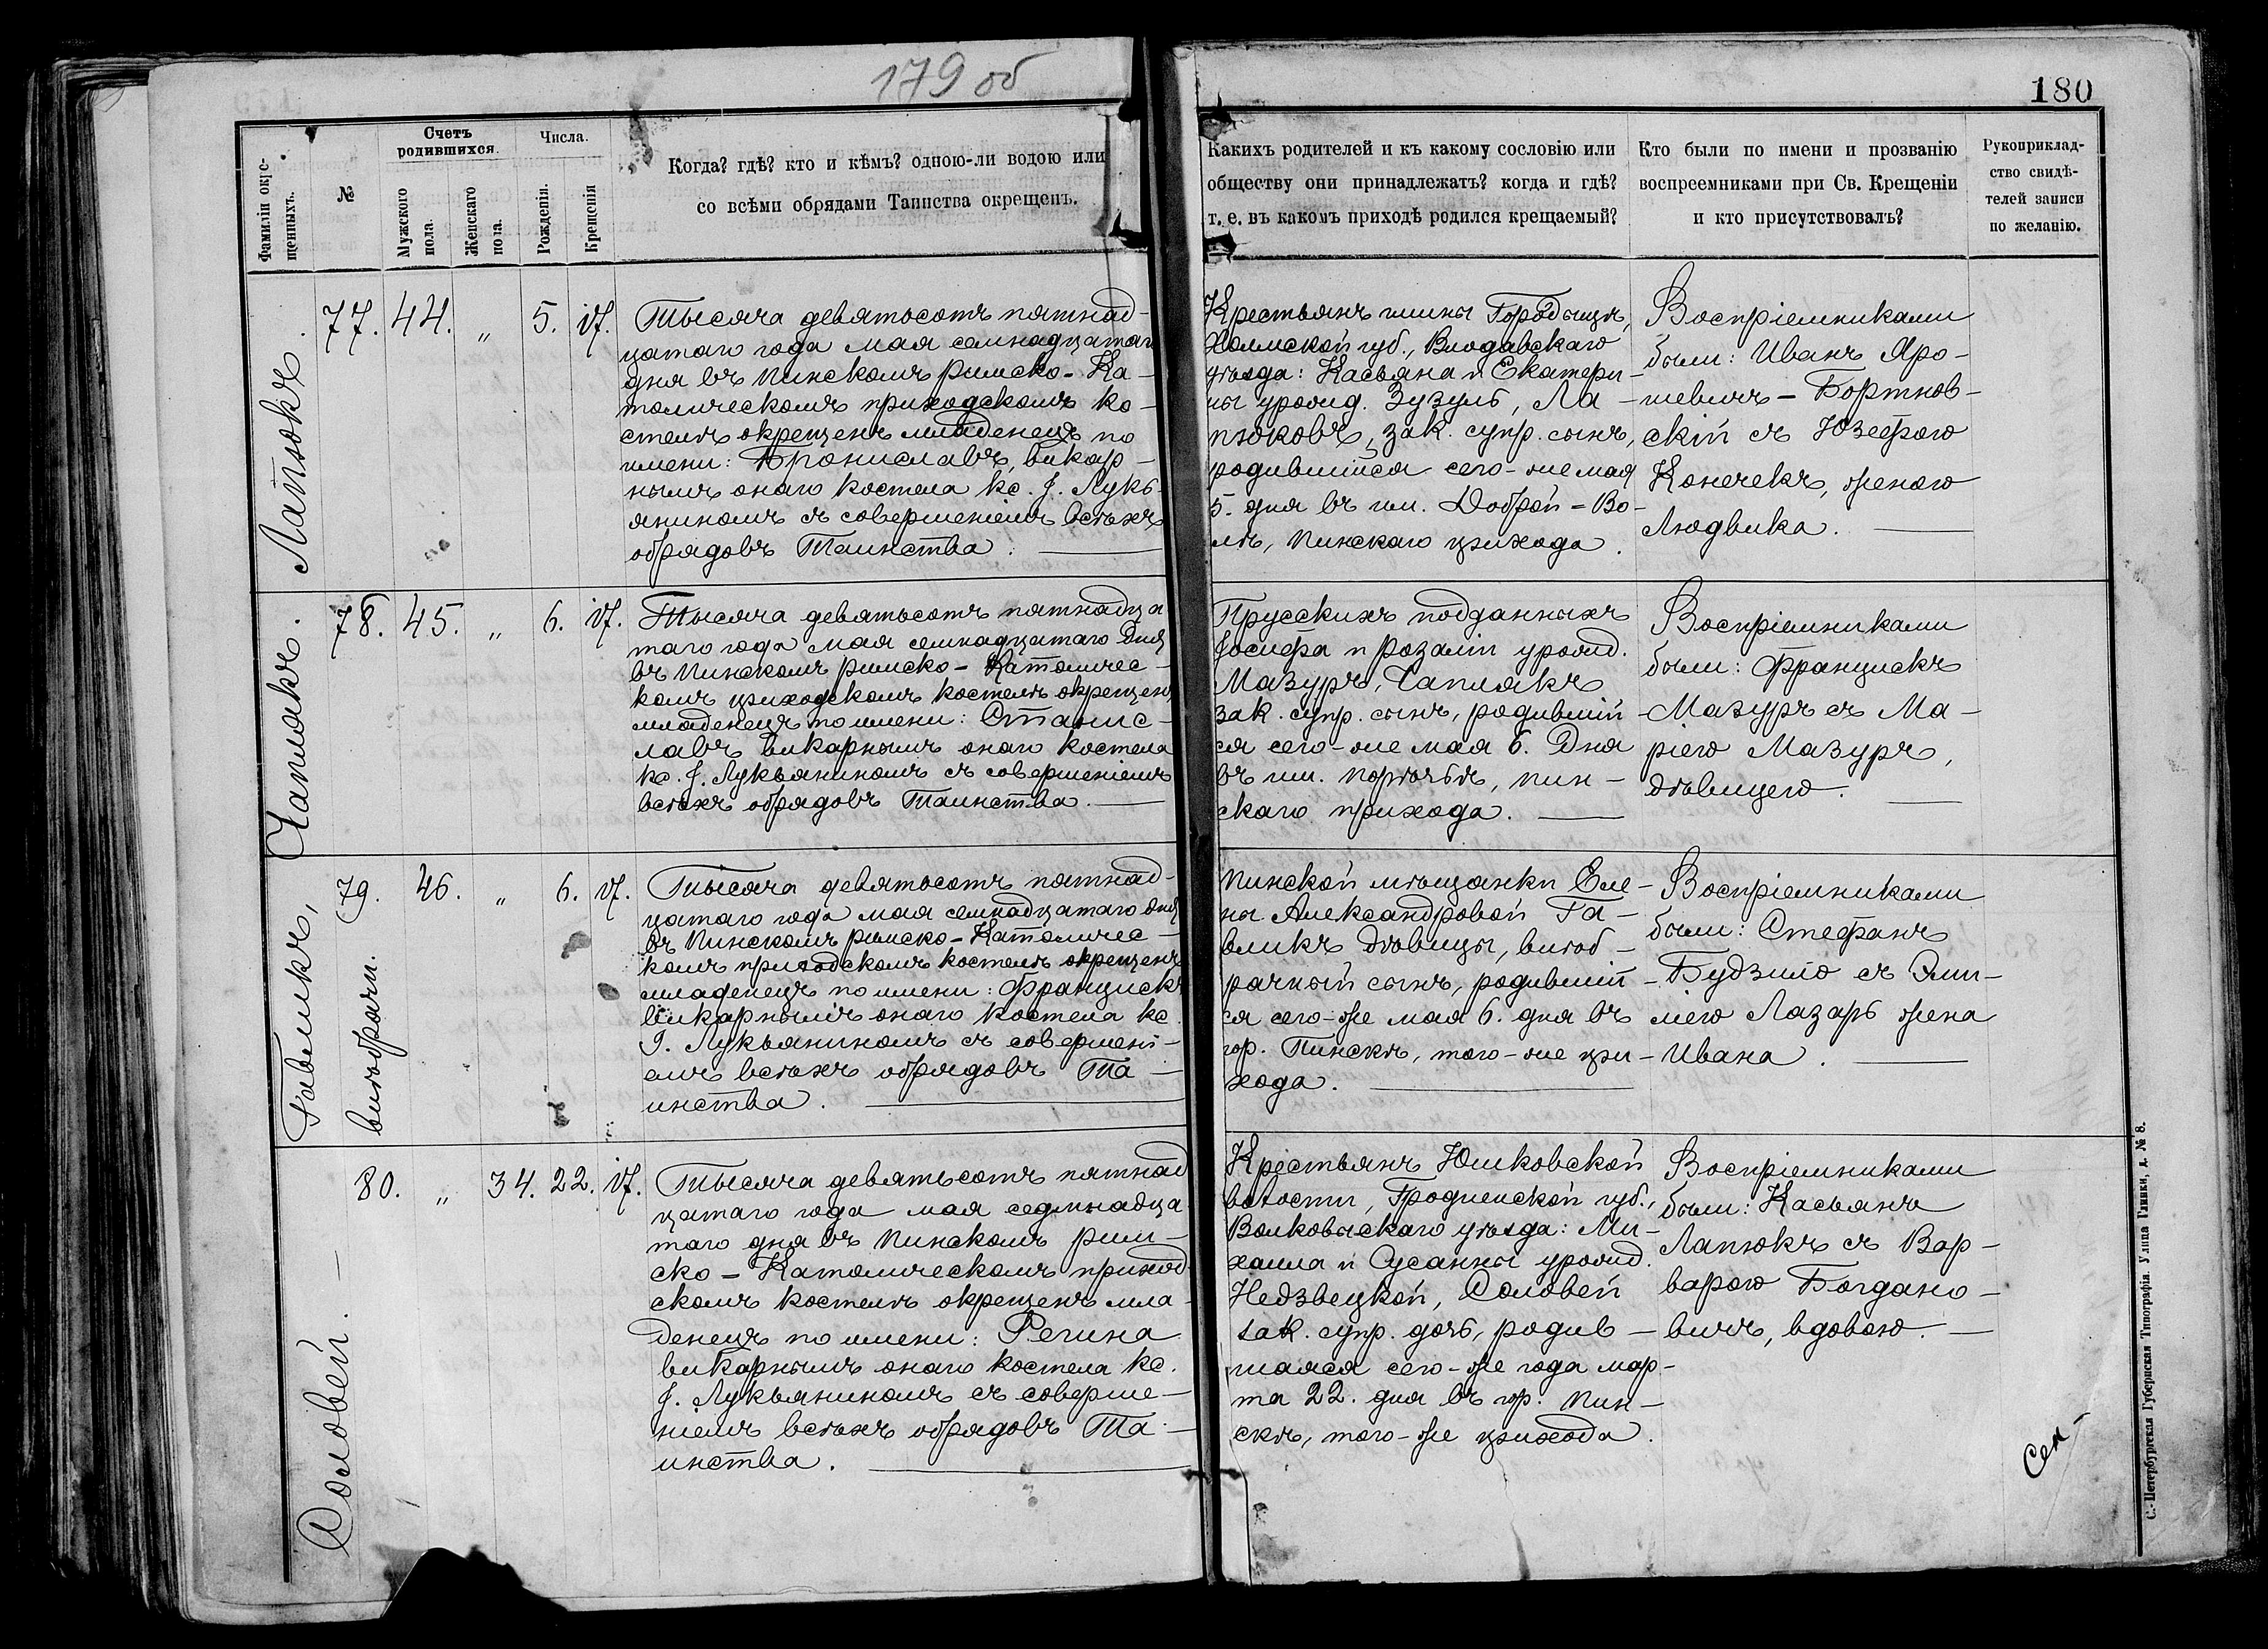 179 об
180
Фамиліи окре-
щенныхъ.
№
Счетъ
родившихся.
Мужского
пола.
Женскаго
пола.
Числа.
Рожденія.
Крещенія
Когда? гдѣ? кто и кѣмъ? одною-ли водою или
со всѣми обрядами Таинства окрещенъ.
Какихъ родителей и къ какому сословію или
обществу они принадлежатъ? когда и гдѣ?
т. е. въ какомъ приходѣ родился крещаемый?
Кто были по имени и прозванію
воспреемниками при Св. Крещеніи
и кто присутствовалъ?
Рукоприклад-
ство свидѣ-
телей записи
по желанію.
Лапюкъ.
77. 44. „ 5. 17.
Тысяча девятьсотъ пятнад-
цатаго года мая семнадцатаго
дня въ Пинскомъ римско-Ка-
толическомъ приходскомъ ко-
стелѣ окрещенъ младенецъ по
имени: Брониславъ, викар-
нымъ онаго костела кс. І. Лукь-
яниномъ съ совершеніемъ всѣхъ
обрядовъ Таинства.
Крестьянъ гмины Городыще,
Холмской губ., Влодавскаго
уѣзда: Касьяна и Екатери-
ны урожд. Зузуль, Ла-
пюковъ, зак. супр. сынъ,
родившійся сего-же мая
5. дня въ им. Доброй-Во-
лѣ, Пинскаго прихода.
Воспріемниками
были: Иванъ Яро-
шевичъ-Бортнов-
скій съ Юзефою
Конечекъ, женою
Людвика.
Чаплякъ.
78. 45. „ 6. 17.
Тысяча девятьсотъ пятнадца
таго года мая семнадцатаго дня
въ Пинскомъ римско-Католичес-
комъ приходскомъ костелѣ окрещенъ
младенецъ по имени: Станис-
лавъ викарнымъ онаго костела
кс. І. Лукьяниномъ съ совершеніемъ
всѣхъ обрядовъ Таинства.
Прусскихъ подданныхъ
Іосифа и Розаліи урожд.
Мазуръ, Чаплякъ
зак. супр. сынъ, родившій-
ся сего-же мая 6. дня
въ им. Порѣчьѣ, Пин-
скаго прихода.
Воспріемниками
были: Францискъ
Мазуръ съ Ма-
ріею Мазуръ,
дѣвицею.
Гавликъ,
внѣбрачн.
79. 46. „ 6. 17.
Тысяча девятьсотъ пятнад-
цатаго года мая семнадцатаго дня
въ Пинскомъ римско-Католичес-
комъ приходскомъ костелѣ окрещенъ
младенецъ по имени: Францискъ
викарнымъ онаго костела кс.
І. Лукьяниномъ съ совершені-
емъ всѣхъ обрядовъ Та-
инства.
Пинской мѣщанки Еле-
ны Александровой Га-
вликъ дѣвицы, внѣб-
рачный сынъ, родившій-
ся сего-же мая 6. дня въ
гор. Пинскѣ, того-же при-
хода.
Воспріемниками
были: Стефанъ
Будзило съ Эми-
ліею Лазарь жена
Ивана.
Соловей.
80. „ 34. 22. 17.
Тысяча девятьсотъ пятнад
цатаго года мая седмнадца
таго дня въ Пинскомъ рим-
ско-Католическомъ приход-
скомъ костелѣ окрещенъ мла-
денецъ по имени: Регина
викарнымъ онаго костела кс.
І. Лукьяниномъ съ соверше-
ніемъ всѣхъ обрядовъ Та-
инства.
Крестьянъ Юшковской
волости, Гродненской губ.,
Волковыскаго уѣзда: Ми-
хаила и Сусанны урожд.
Недзвецкой, Соловей
зак. супр. дочь, родив-
шаяся сего-же года мар-
та 22. дня въ гор. Пин-
скѣ, того-же прихода.
Воспріемниками
были: Касьянъ
Лапюкъ съ Вар-
варою Богдано-
вичъ, вдовою.
С.-Петербургская Губернская Типографія. Улица Глинки, д. № 8.